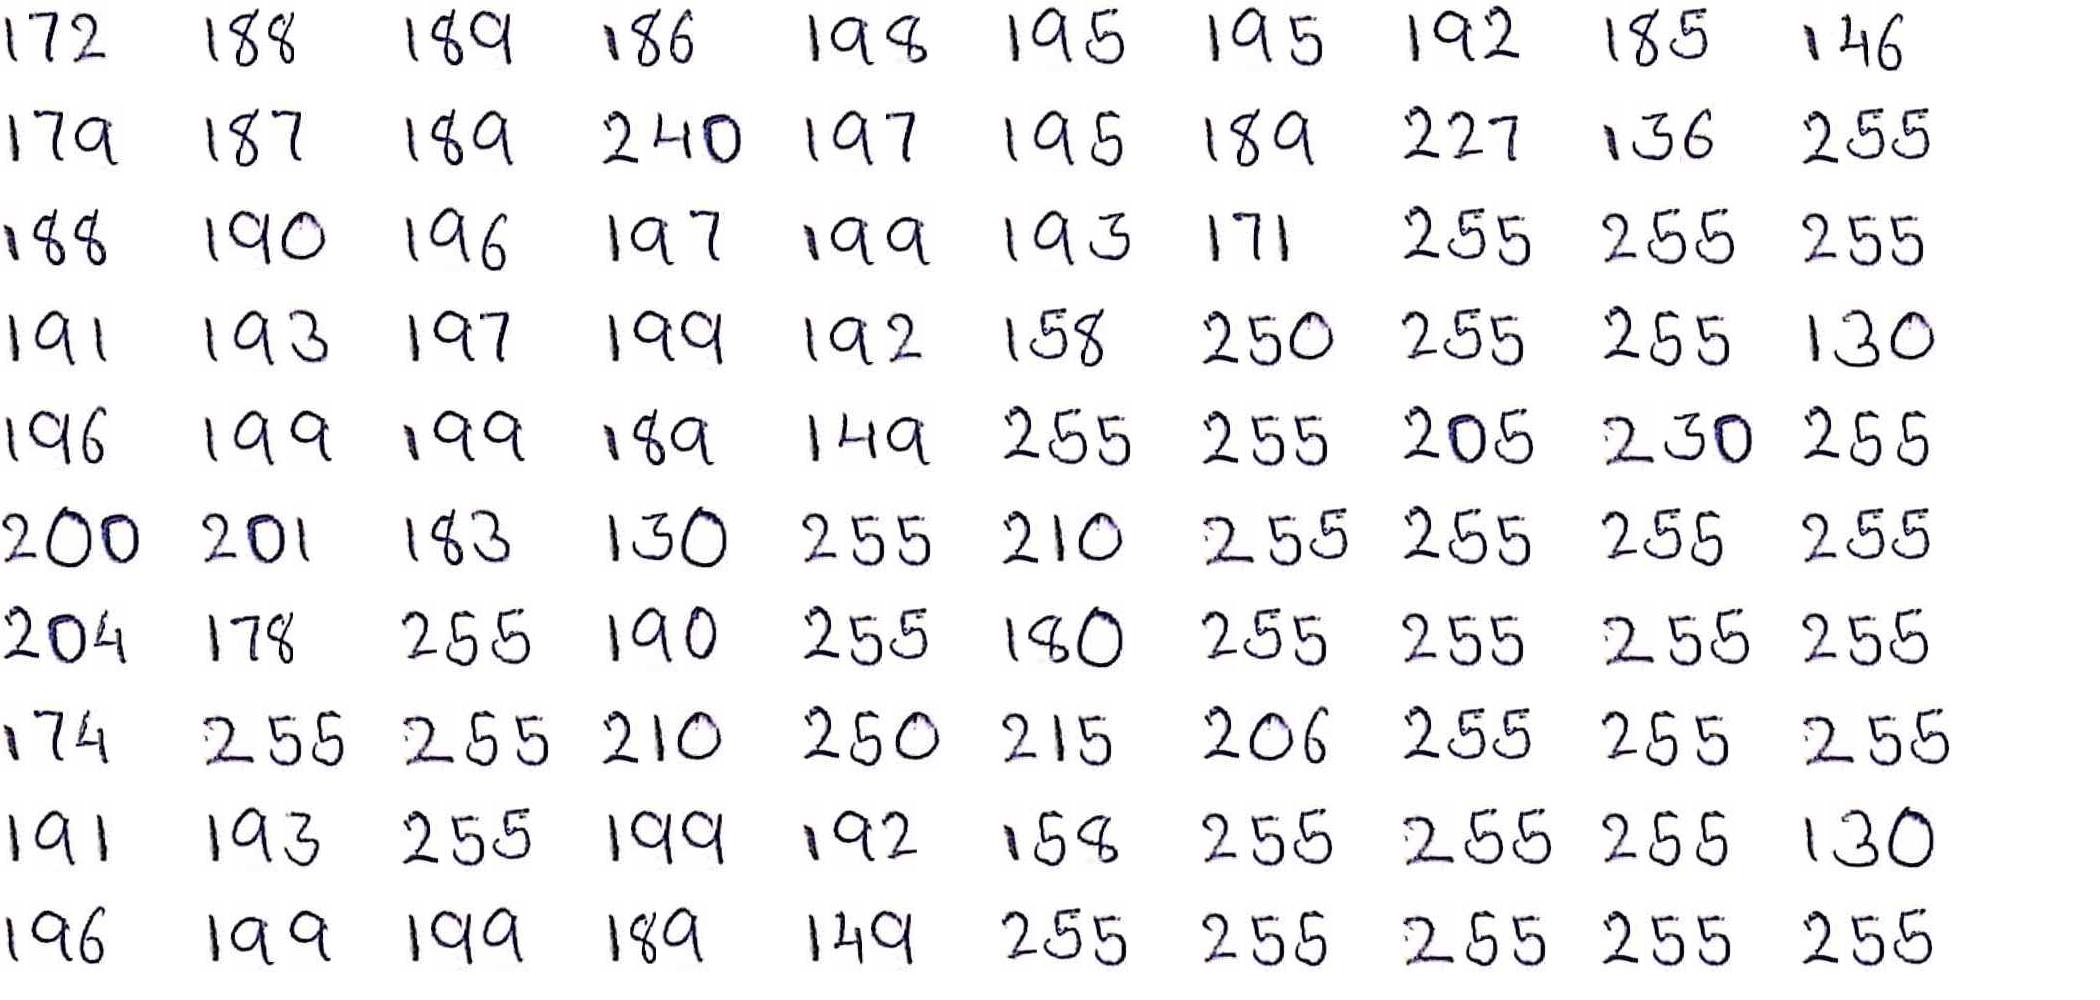 172 188 189 186 198 195 195 192 185 146
179 187 189 240 197 195 189 227 136 255
188 190 196 197 199 193 171 255 255 255
191 193 197 199 192 158 250 255 255 130
196 199 199 189 149 255 255 205 230 255
200 201 183 130 255 210 255 255 255 255
204 178 255 190 255 180 255 255 255 255
174 255 255 210 250 215 206 255 255 255
191 193 255 199 192 158 255 255 255 130
196 199 199 189 149 255 255 255 255 255